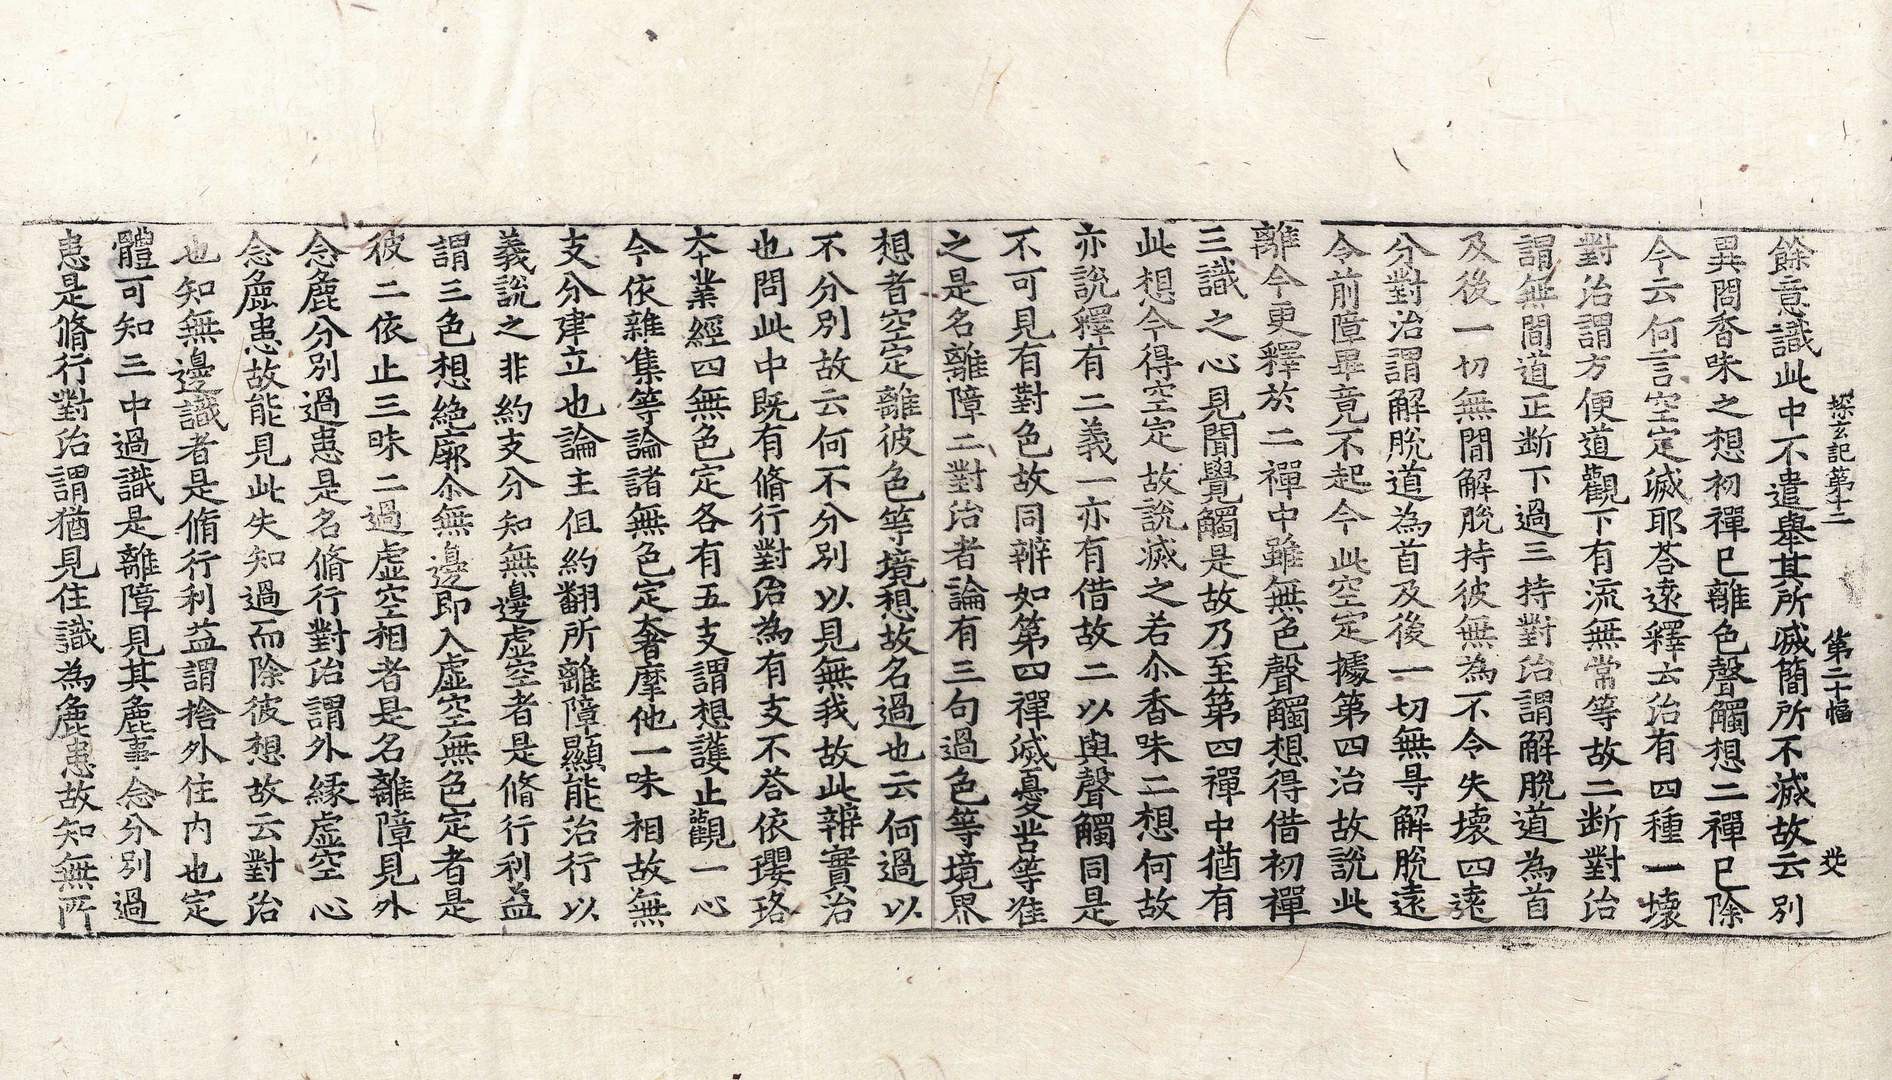 探玄記第十二 第二十幅 㳒
餘意識此中不遣舉其所滅簡所不滅故云別
異問香味之想初禪已離色聲觸想二禪已除
今云何言空定滅耶荅遠釋云治有四種一壞
對治謂方便道觀下有流無常等故二断對治
謂無間道正断下過三持對治謂解脫道為首
及後一切無間解脫持彼無為不令失壞四遠
分對治謂解脫道為首及後一切無㝵解脫遠
令前障畢竟不起今此空定據第四治故說此
離今更釋於二禪中雖無色聲觸想得借初禪
三識之心見聞覺觸是故乃至第四禪中猶有
此想今得空定故說滅之若尒香味二想何故
亦說釋有二義一亦有借故二以與聲觸同是
不可見有對色故同辨如第四禪滅憂苦等准
之是名離障二對治者論有三句過色等境界
想者空定離彼色等境想故名過也云何過以
不分別故云何不分別以見無我故此辨實治
也問此中既有脩行對治為有支不荅依瓔珞
夲業經四無色定各有五支謂想護止觀一心
今依雜集等論諸無色定奢摩他一味相故無
支分建立也論主但約翻所離障顯能治行以
義說之非約支分知無邊虛空者是脩行利益
謂三色想絶廓尒無邊即入虛空無色定者是
彼二依止三昧二過虛空相者是名離障見外
念麁分別過患是名脩行對治謂外緣虛空心
念麁患故能見此失知過而除彼想故云對治
也知無邊識者是脩行利益謂捨外住内也定
體可知三中過識是離障見其麁事念分別過
患是脩行對治謂猶見住識為麁患故知無所